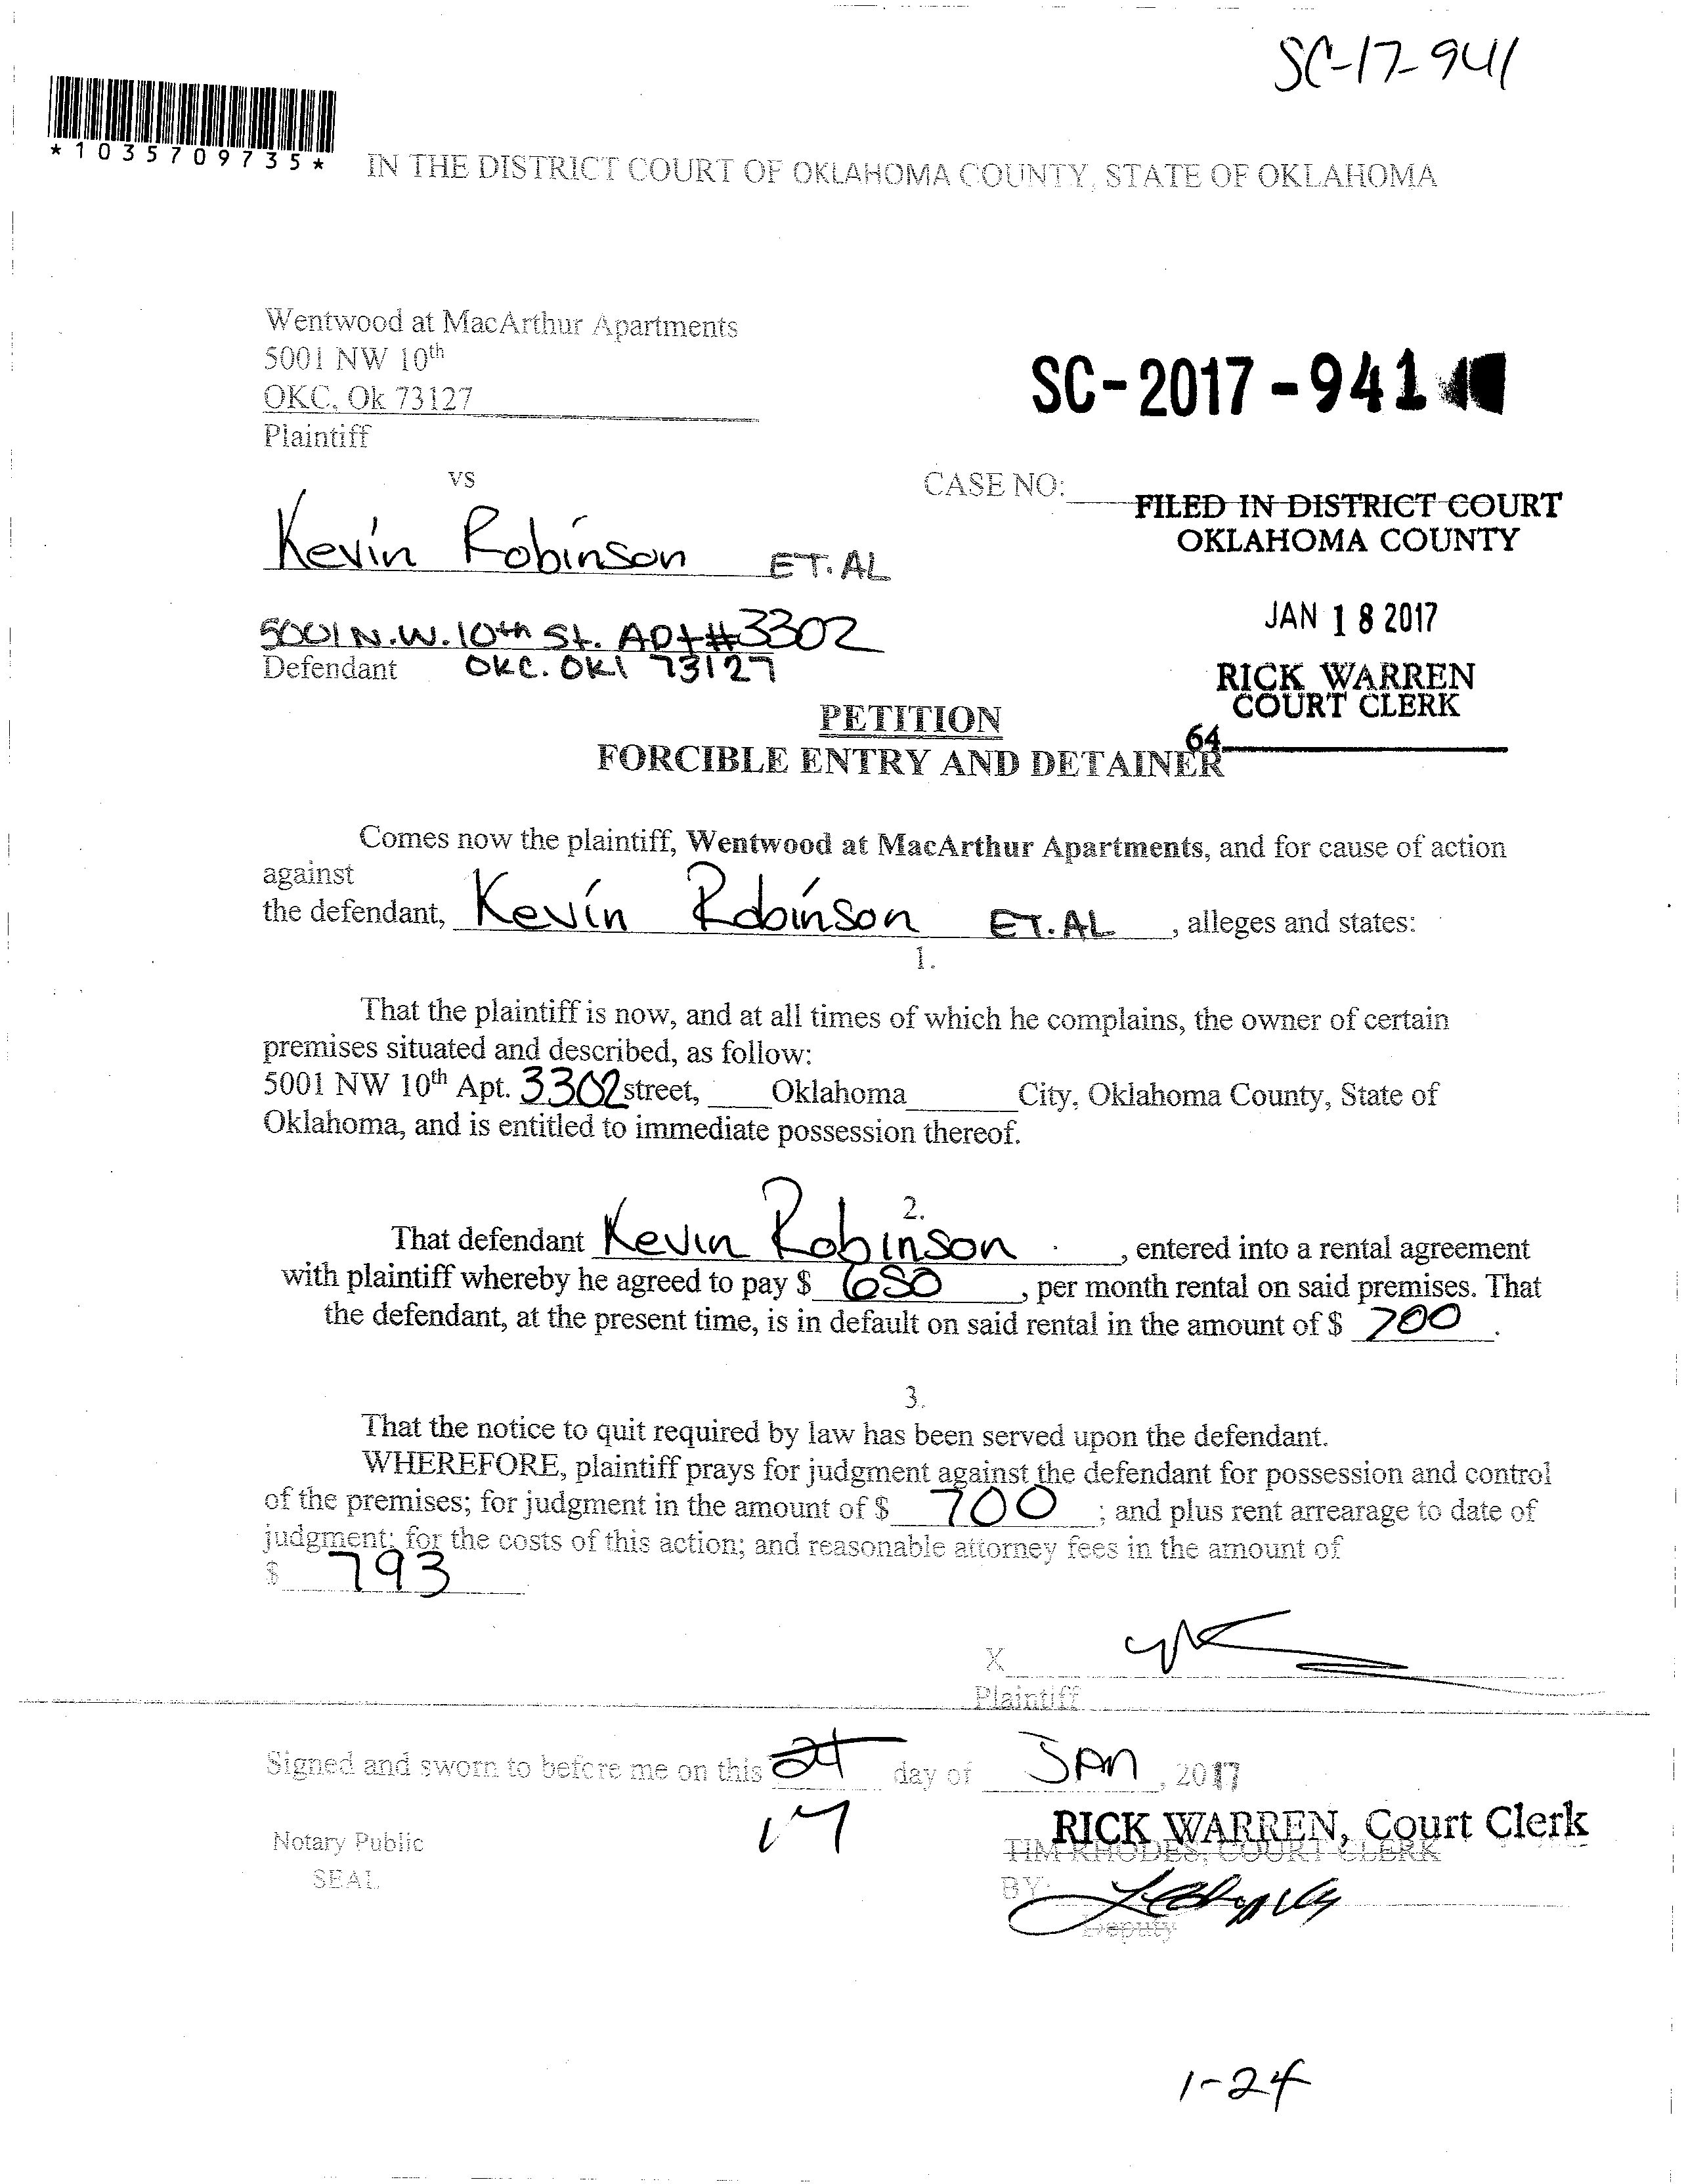 SC-17-941
*1035709735*
IN THE DISTRICT COURT OF OKLAHOMA COUNTY, STATE OF OKLAHOMA
Wentwood at MacArthur Apartments
5001 NW 10th
OKC, Ok 73127
Plaintiff
SC-2017-941
vs
CASE NO:
FILED IN DISTRICT COURT
OKLAHOMA COUNTY
Kevin Robinson ET.AL
JAN 18 2017
5001 N.W. 10th St. Apt#3302
Defendant OKC. OKl 73127
RICK WARREN
COURT CLERK
64
PETITION
FORCIBLE ENTRY AND DETAINER
Comes now the plaintiff, Wentwood at MacArthur Apartments, and for cause of action
against
the defendant, Kevin Robinson ET.AL, alleges and states:
1.
That the plaintiff is now, and at all times of which he complains, the owner of certain
premises situated and described, as follow:
5001 NW 10th Apt. 3302 street, Oklahoma City, Oklahoma County, State of
Oklahoma, and is entitled to immediate possession thereof.
2.
That defendant Kevin Robinson, entered into a rental agreement
with plaintiff whereby he agreed to pay $ 650, per month rental on said premises. That
the defendant, at the present time, is in default on said rental in the amount of $ 700.
3.
That the notice to quit required by law has been served upon the defendant.
WHEREFORE, plaintiff prays for judgment against the defendant for possession and control
of the premises; for judgment in the amount of $ 700; and plus rent arrearage to date of
judgment; for the costs of this action; and reasonable attorney fees in the amount of
$ 793
X
Plaintiff
Signed and sworn to before me on this 24 day of JAN, 2017
17
RICK WARREN, Court Clerk
Notary Public
TIM RHODES, COURT CLERK
SEAL
BY:
Deputy
1-24